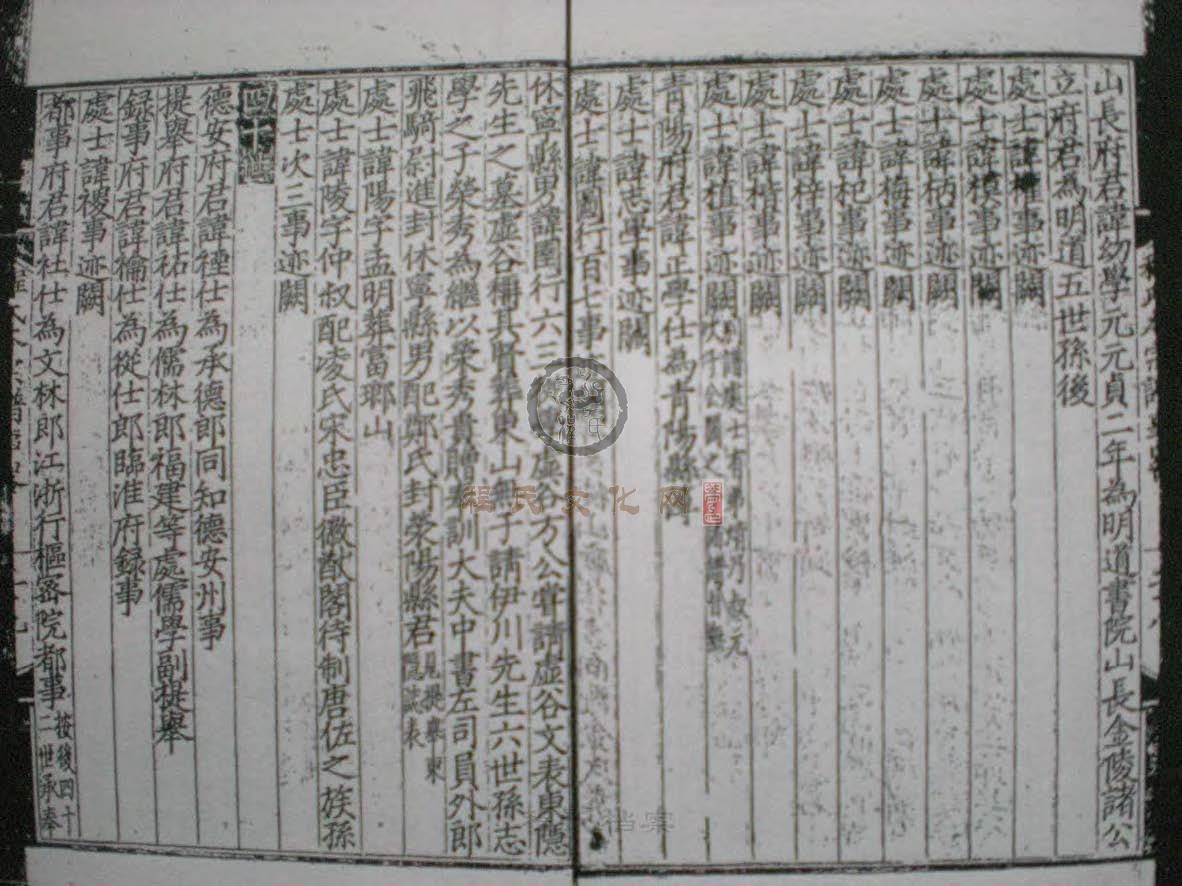 山長府君諱幼學元元貞二年為明道書院山長金陵諸公
立府君為明道五世孫後
處士諱權事迹闕
處士諱模事迹闕
處士諱栝事迹闕
處士諱梅事迹闕
處士諱杞事迹闕
處士諱梓事迹闕
處士諱楷事迹闕
處士諱植事迹闕
青陽府君諱正學仕為青陽縣
處士諱志學事迹闕
處士諱圓行百七事
休寧縣男諱圍行六三 虛谷方公嘗請虛谷文表東隱
先生之墓虛谷稱其賢葬東山無子請伊川先生六世孫志
學之子榮秀為繼以榮秀貴贈奉訓大夫中書左司員外郎
飛騎尉進封休寧縣男配鄭氏封滎陽縣君
處士諱陽字孟明葬富瑯山
處士諱陵字仲叔配凌氏宋忠臣徽猷閣待制唐佐之族孫
處士次三事迹闕
四十世
德安府君諱禋仕為承德郎同知德安州事
提舉府君諱祐仕為儒林郎福建等處儒學副提舉
錄事府君諱禴仕為從仕郎臨淮府錄事
處士諱禝事迹闕
都事府君諱社仕為文林郎江浙行樞密院都事 按後四十
二世承奉
程氏文化网
档案